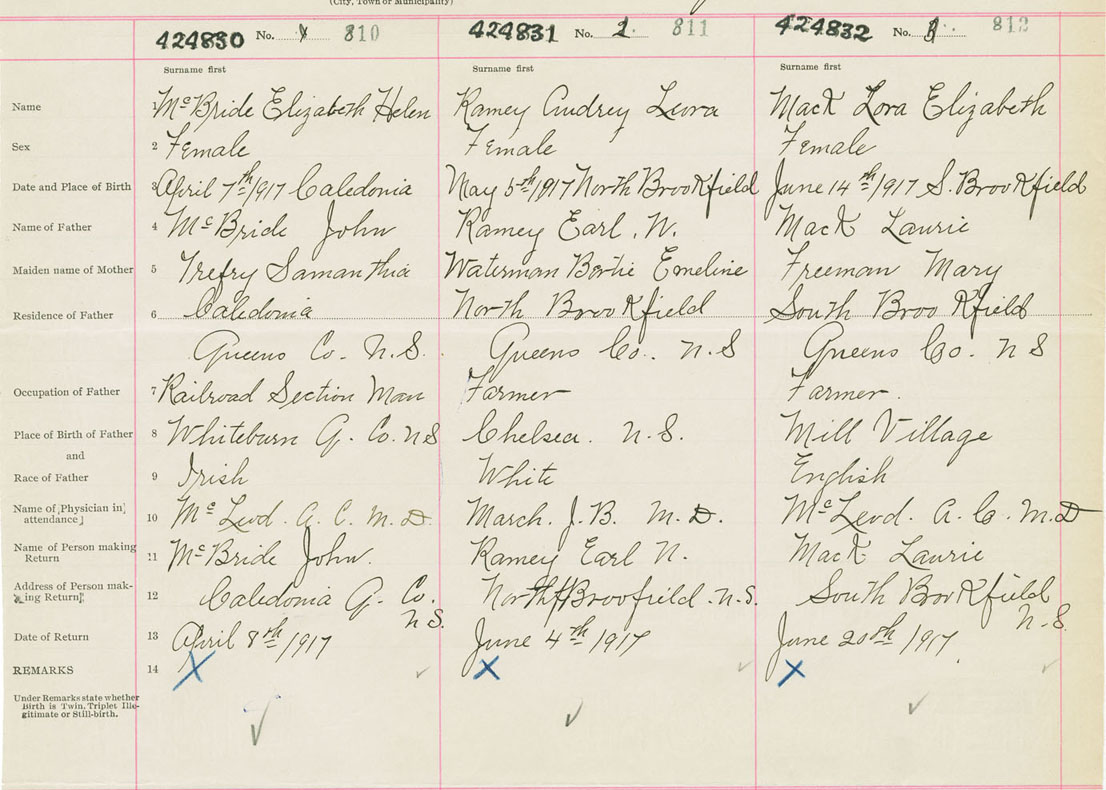 (City, Town or Municipality)
424830 No. 1 810 424831 No. 2. 811 424832 No. 3. 812
Surname first Surname first Surname first
Name 1 McBride Elizabeth Helen Ramey Audrey Leora Mack Lora Elizabeth
Sex 2 Female Female Female
Date and Place of Birth 3 April 7th/1917 Caledonia May 5th/1917 North Brookfield June 14th/1917 S. Brookfield
Name of Father 4 McBride John Ramey Earl. W. Mack Laurie
Maiden name of Mother 5 Trefry Samanthia Waterman Bertie Emeline Freeman Mary
Residence of Father 6 Caledonia North Brookfield South Brookfield
Queens Co. N.S. Queens Co.. N.S Queens Co. N S
Occupation of Father 7 Railroad Section Man Farmer Farmer.
Place of Birth of Father 8 Whiteburn Q. Co. N S Chelsea. N.S. Mill Village
and
Race of Father 9 Irish White English
Name of [Physician in 10 McLeod. A. C. M. D. March. J. B. M. D. McLeod. A. C. M. D
attendance]
Name of Person making 11 McBride John. Ramey Earl N. Mack Laurie
Return
Address of Person mak- 12 Caledonia Q. Co. North Broofield. N.S. South Brookfield
ing Return] N.S. N.S.
Date of Return 13 April 8th/1917 June 4th/1917 June 20th/1917
REMARKS 14
Under Remarks state whether
Birth is Twin, Triplet Ille-
gitimate or Still-birth.